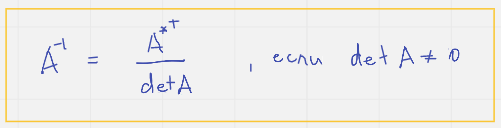 A⁻¹ = A*ᵀ / det A , если det A ≠ 0